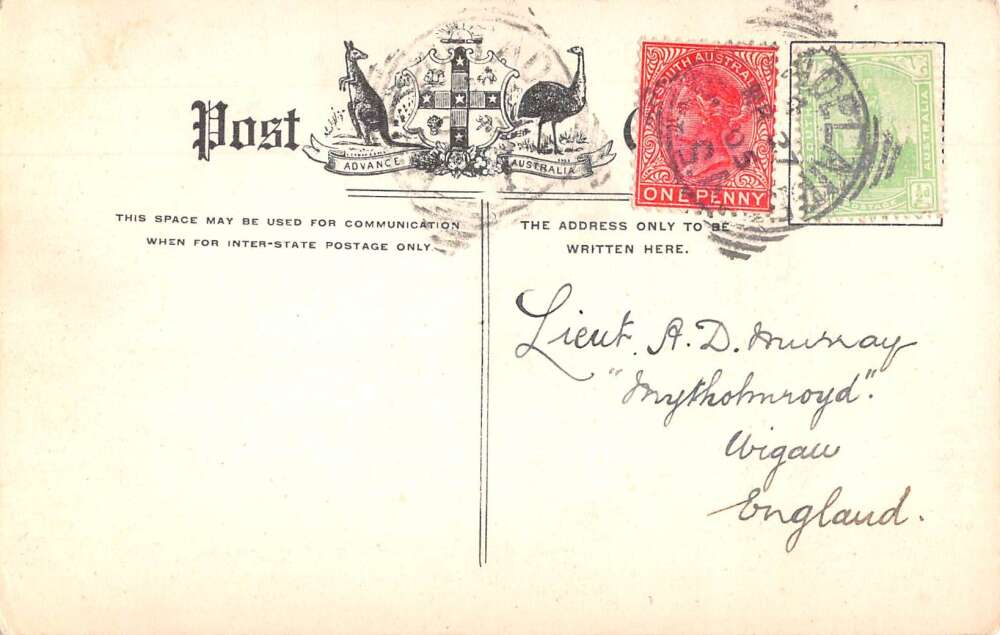 Post
ADVANCE
AUSTRALIA
SOUTH AUSTRALIA
ONE PENNY
SOUTH
AUSTRALIA
½d
ADELAIDE
THIS SPACE MAY BE USED FOR COMMUNICATION
WHEN FOR INTER-STATE POSTAGE ONLY.
THE ADDRESS ONLY TO BE
WRITTEN HERE.
Lieut. A. D. Murray
"Mytholmroyd".
Wigan
England.